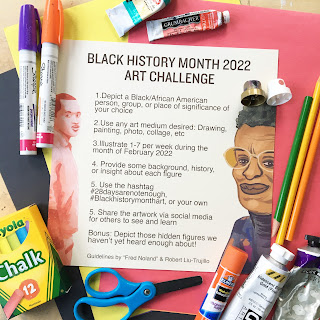 BLACK HISTORY MONTH 2022
ART CHALLENGE
1.Depict a Black/African American
person, group, or place of significance of
your choice
2.Use any art medium desired: Drawing,
painting, photo, collage, etc
3.Illustrate 1-7 per week during the
month of February 2022
4. Provide some background, history,
or insight about each figure
5. Use the hashtag
#28daysarenotenough,
#Blackhistorymonthart, or your own
5. Share the artwork via social media
for others to see and learn
Bonus: Depict those hidden figures we
haven't yet heard enough about!
Guidelines by "Fred Noland" & Robert Liu-Trujillo
GRUMBACHER
Crayola
Chalk
12